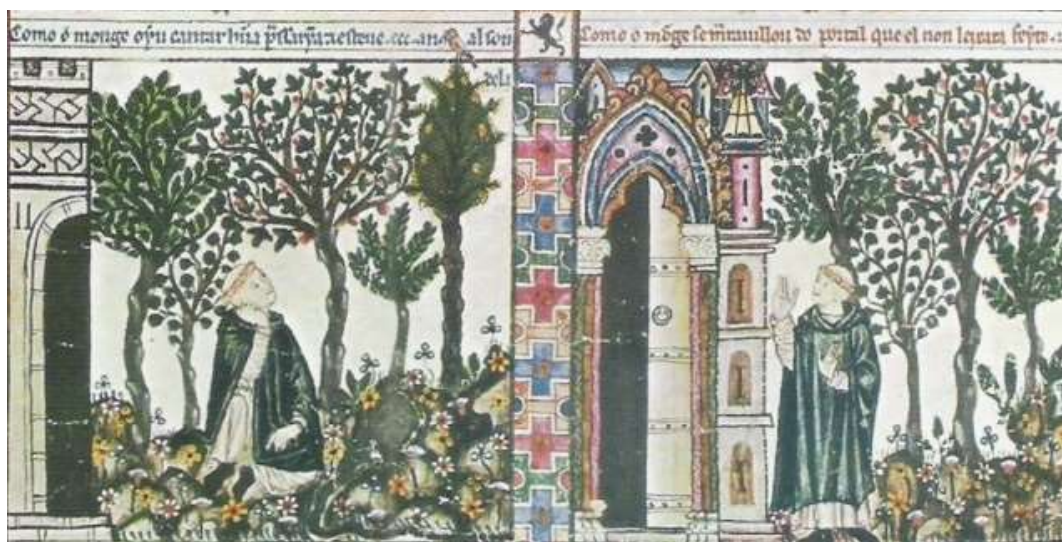 Como o monge oyu cantar hũa passarỹa ⁊ esteue ccc anos al son
deli
Como o mõge se marauillou do portal que el non leixara feyto